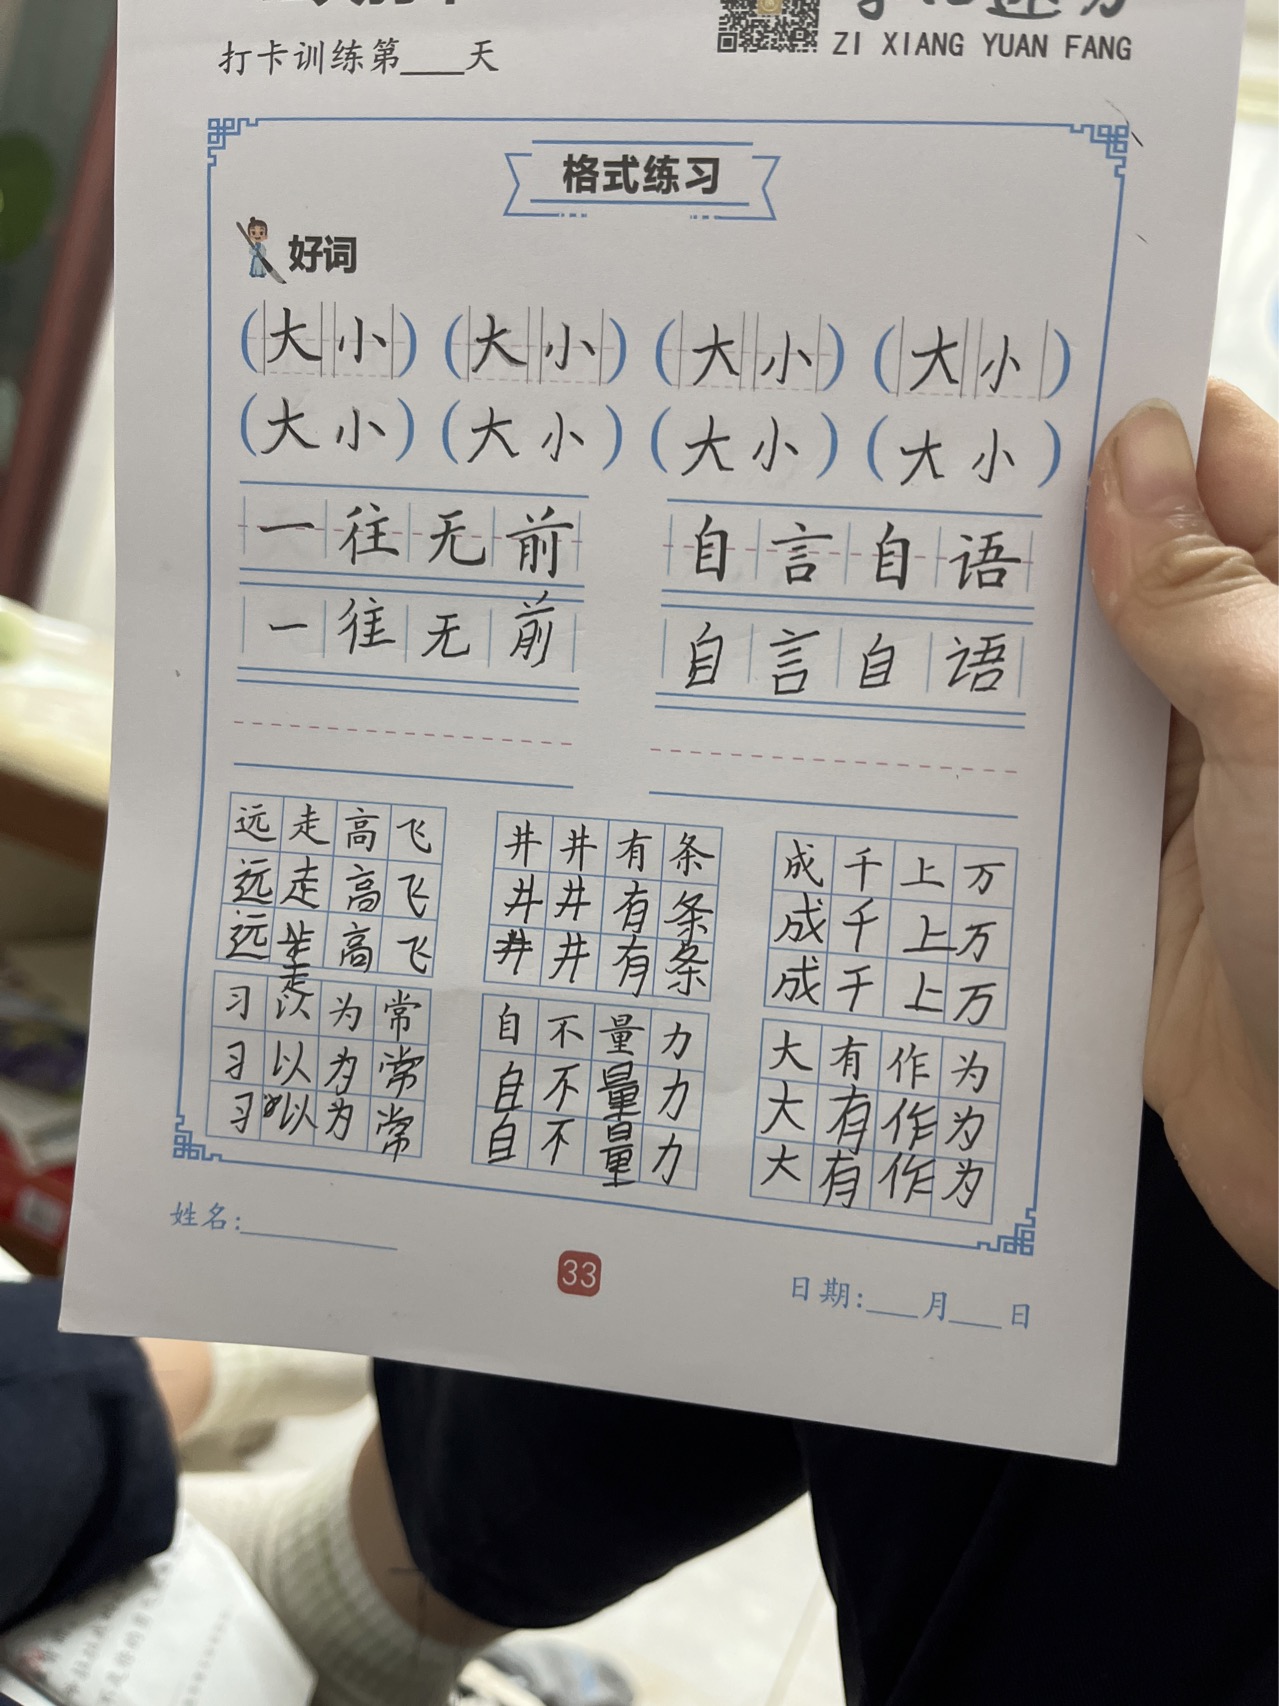 打卡训练第___天
ZI XIANG YUAN FANG
格式练习
好词
(大小) (大小) (大小) (大小)
(大小) (大小) (大小) (大小)
一往无前 自言自语
一往无前 自言自语
远走高飞 井井有条 成千上万
远走高飞 井井有条 成千上万
远走高飞 井井有条 成千上万
习以为常 自不量力 大有作为
习以为常 自不量力 大有作为
习以为常 自不量力 大有作为
姓名:
33
日期:___月___日